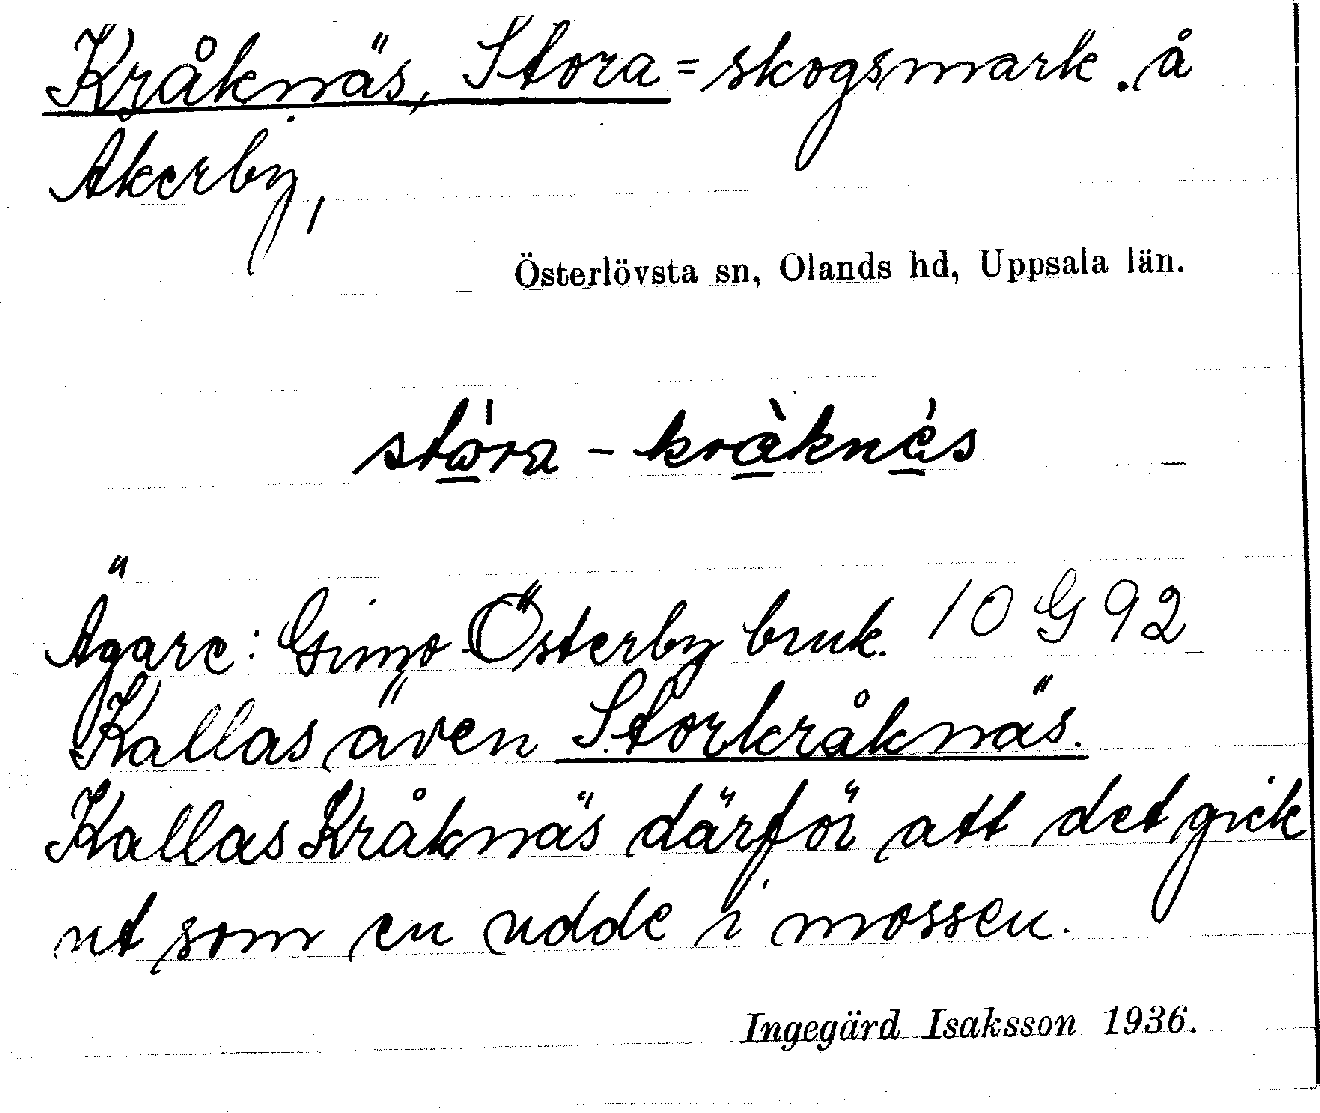 Kråknäs, Stora = skogsmark å
Åkerby,
Österlövsta sn, Olands hd, Uppsala län.
stóra - kràknés
Ägare: Gimo Österby bruk. 10 G 92
Kallas även Storkråknäs.
Kallas Kråknäs därför att det gick
ut som en udde i mossen.
Ingegärd Isaksson 1936.